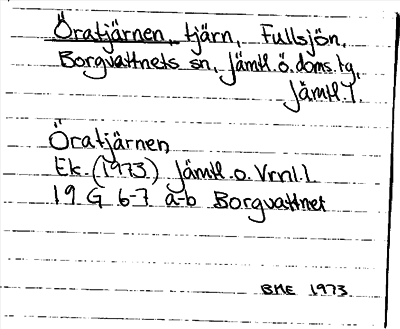 Öratjärnen, tjärn, Fullsjön,
Borgvattnets sn, Jämtl.ö.doms.tg,
Jämtl.l.
Öratjärnen
Ek. (1973) Jämtl.o.Vrnl.l
19 G 6-7 a-b Borgvattnet
BME 1973